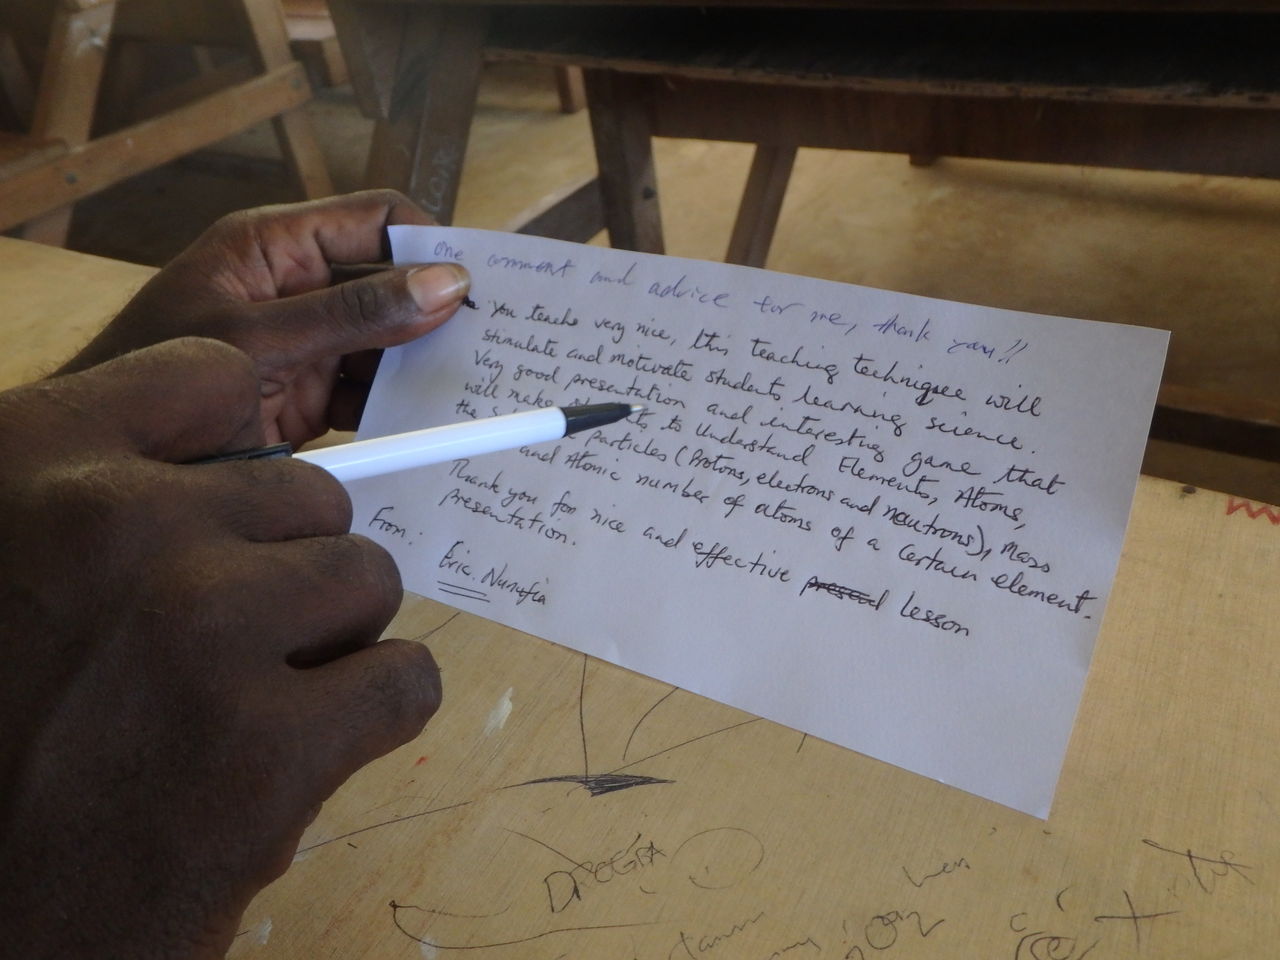 one comment and advice for me, thank you!!
You teache very nice, this teaching technique will
stimulate and motivate students learning science.
Very good presentation and interesting game that
will make to Understand Elements, Atoms,
the particles (Protons, electrons and neutrons), Mass
and Atomic number of atoms of a Certain element.
Thank you for nice and effective lesson
presentation.
From:
Eric.